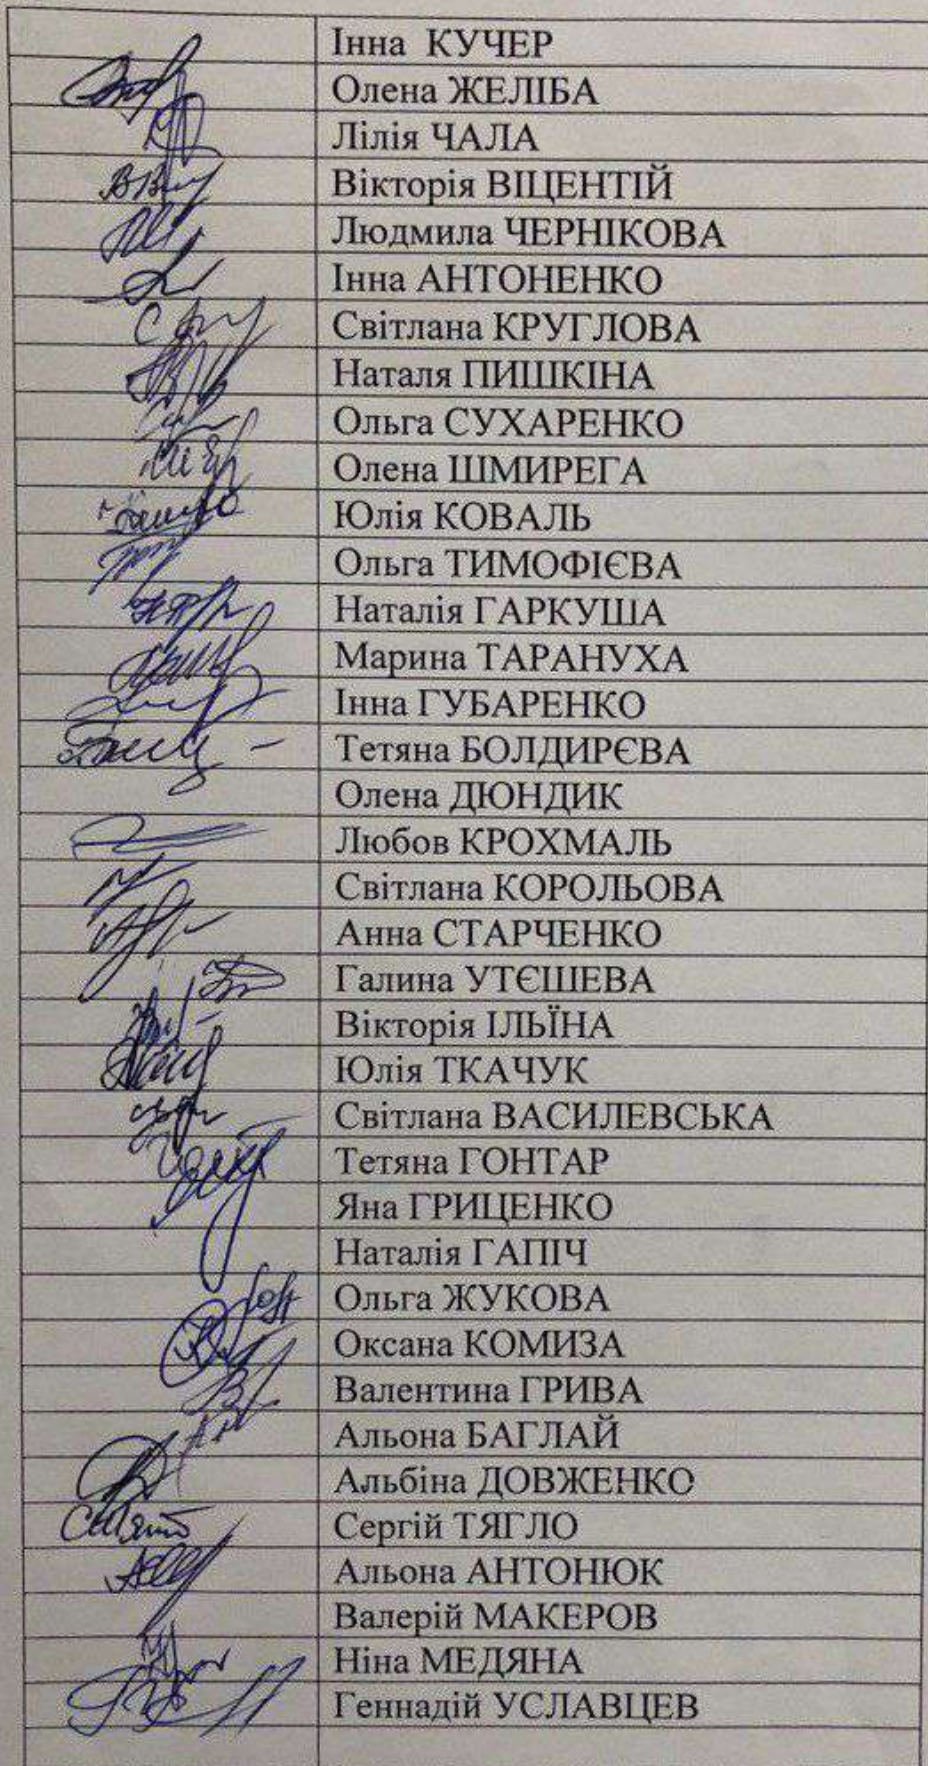 Інна КУЧЕР
Олена ЖЕЛІБА
Лілія ЧАЛА
Вікторія ВІЦЕНТІЙ
Людмила ЧЕРНІКОВА
Інна АНТОНЕНКО
Світлана КРУГЛОВА
Наталя ПИШКІНА
Ольга СУХАРЕНКО
Олена ШМИРЕГА
Юлія КОВАЛЬ
Ольга ТИМОФІЄВА
Наталія ГАРКУША
Марина ТАРАНУХА
Інна ГУБАРЕНКО
Тетяна БОЛДИРЄВА
Олена ДЮНДИК
Любов КРОХМАЛЬ
Світлана КОРОЛЬОВА
Анна СТАРЧЕНКО
Галина УТЄШЕВА
Вікторія ІЛЬЇНА
Юлія ТКАЧУК
Світлана ВАСИЛЕВСЬКА
Тетяна ГОНТАР
Яна ГРИЦЕНКО
Наталія ГАПІЧ
Ольга ЖУКОВА
Оксана КОМИЗА
Валентина ГРИВА
Альона БАГЛАЙ
Альбіна ДОВЖЕНКО
Сергій ТЯГЛО
Альона АНТОНЮК
Валерій МАКЕРОВ
Ніна МЕДЯНА
Геннадій УСЛАВЦЕВ